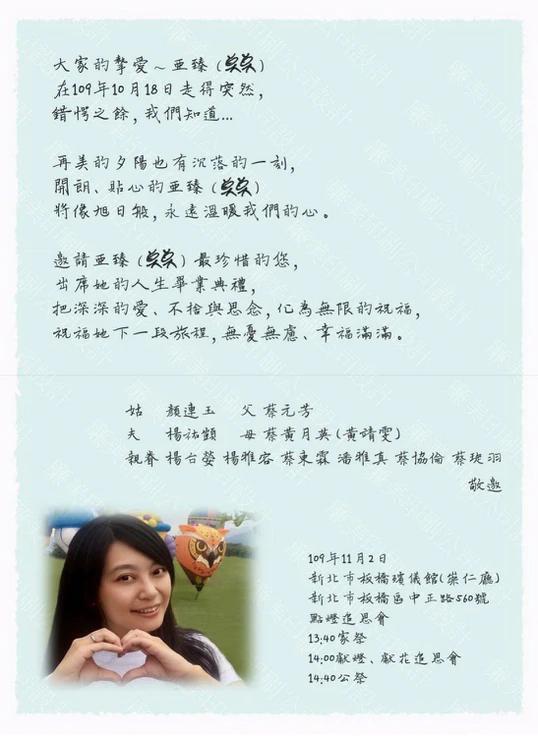 大家的摯愛～亜臻（笶笶）
在109年10月18日走得突然，
錯愕之餘，我們知道...
再美的夕陽也有沉落的一刻，
開朗、貼心的亜臻
將像旭日般，永遠溫暖我們的心。
邀請亜臻 最珍惜的您，
出席她的人生畢業典禮，
把深深的愛、不捨與思念，化為無限的祝福，
祝福她下一段旅程，無憂無慮、幸福滿滿。
姑 顏連玉 父 蔡元芳
夫 楊祐 母 蔡黃月英（黃靖雯）
親眷 楊台 楊雅容 蔡東霖 潘雅真 蔡協倫 蔡 羽
敬邀
109年11月2日
新北市板橋殯儀館（崇仁廳）
新北市板橋區中正路560號
點燈追思會
13:40家祭
14:00獻燈、獻花追思會
14:40公祭